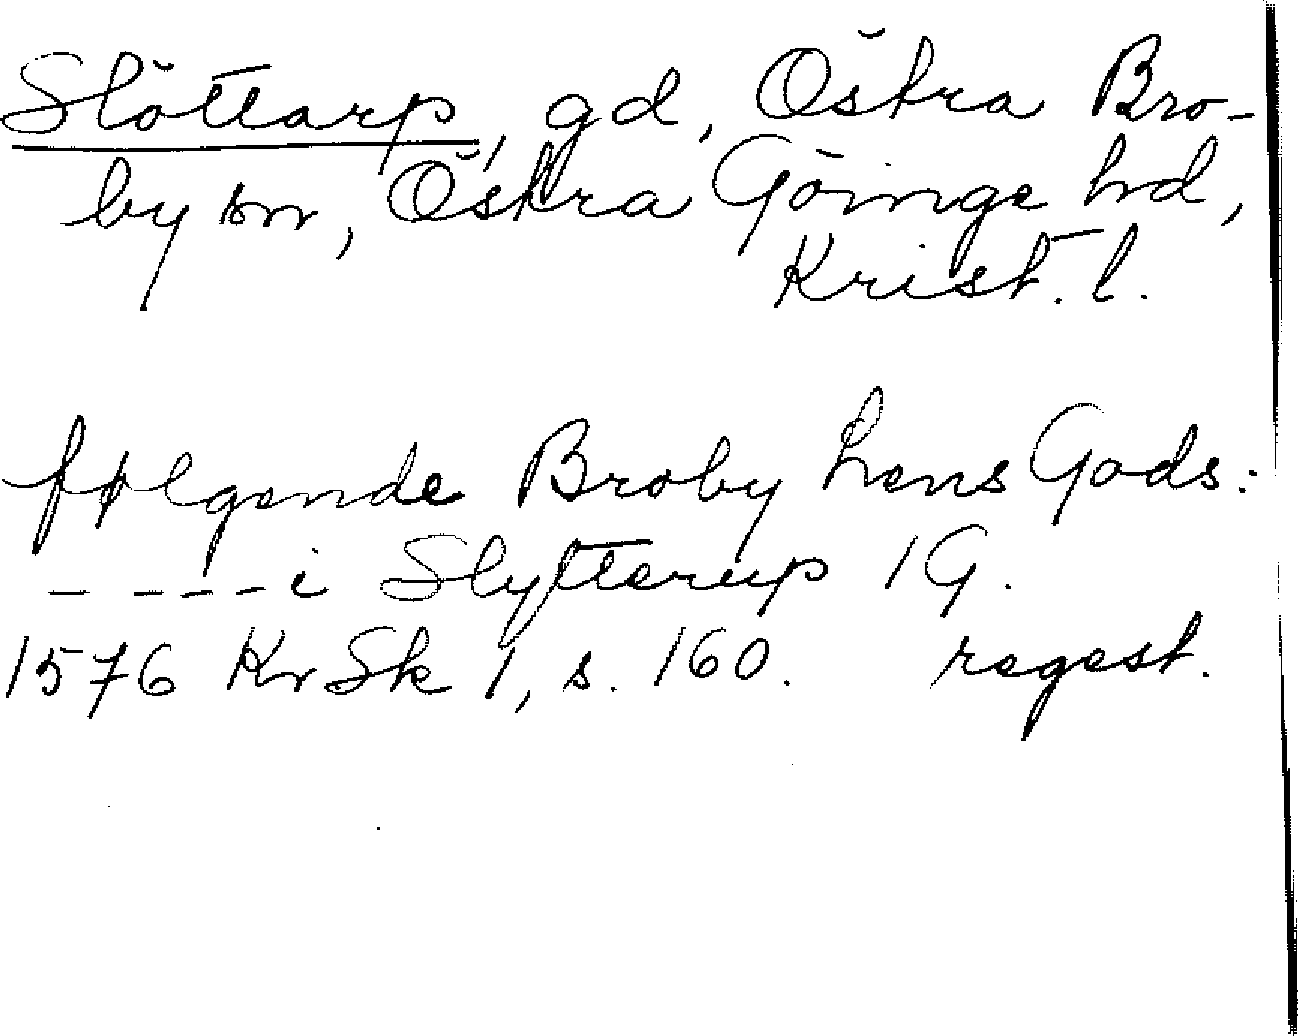 Slöttarp, gd, Östra Bro-
by sn, Östra Göinge hd,
Krist. l.
følgende Broby Lens Gods:
_ _ _ _ _ i Slytterup 1 G.
1576 KrSk 1, s. 160. regest.